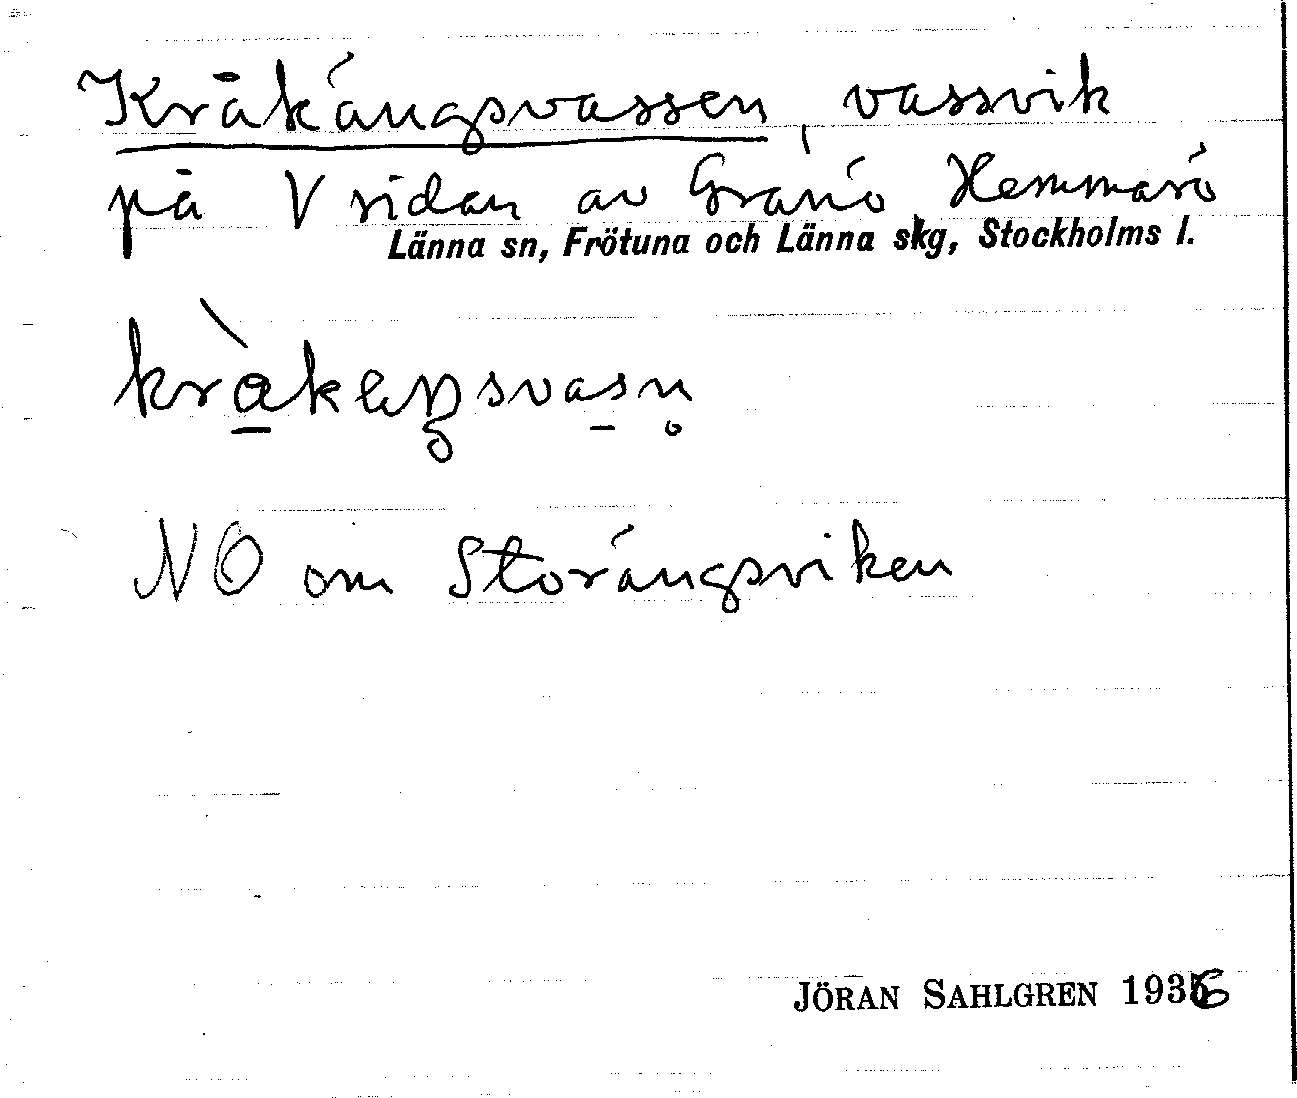 Kråkängsvassen, vassvik
på V sidan av Granö Hemmarö
Länna sn, Frötuna och Länna skg, Stockholms l.
NO om Storängsviken
JÖRAN SAHLGREN 1936